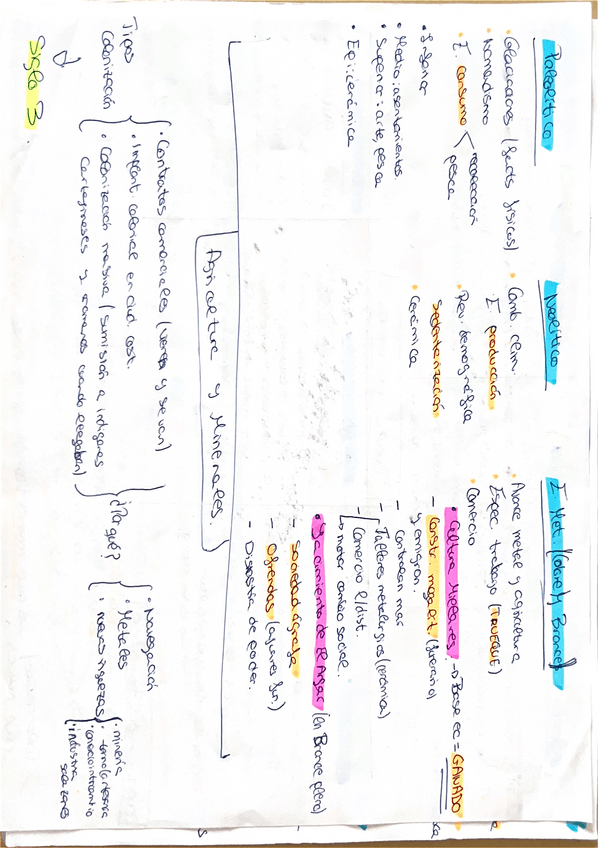 Paleolítico
• Glaciaciones (facts físicos)
• Nomadismo
• E. consumo < recolección
pesca
• Inferior
• Medio: asentamientos.
• Superior: arte, pesca
• Epi: cerámica
Neolítico
• Camb. clim.
E producción
• Rev. demográfica
Sedentarización
• Cerámica
E Met (cobre y Bronce)
• Avance metal y agricultura
• Espec. trabajo (TRUEQUE)
• Comercio
• Cultura Millares → Base ec = GANADO
- Constr. megalít. (funerario)
y emigran.
- controlan mar
- Talleres metalurgios (cerámica)
- Comercio l/dist.
↳ motor cambio social.
• Yacimiento de El Argar (en Bronce pleno)
- Sociedad agraria
- Ofrendas (ajuares fun.)
- Disimetría de poder.
Agricultura y Minerales.
Tipos
Colonización
• Contratos comerciales (llegan y se van)
• Implant. colonial en ciud. cost.
• Colonización masiva / sumisión a indígenas
Cartagineses y romanos cuando llegaban)
¿Por qué?
• Navegación
• Metales
• nuevas riquezas
• minería
• comercio intramitio
• industria
salazones
Siglo 3.